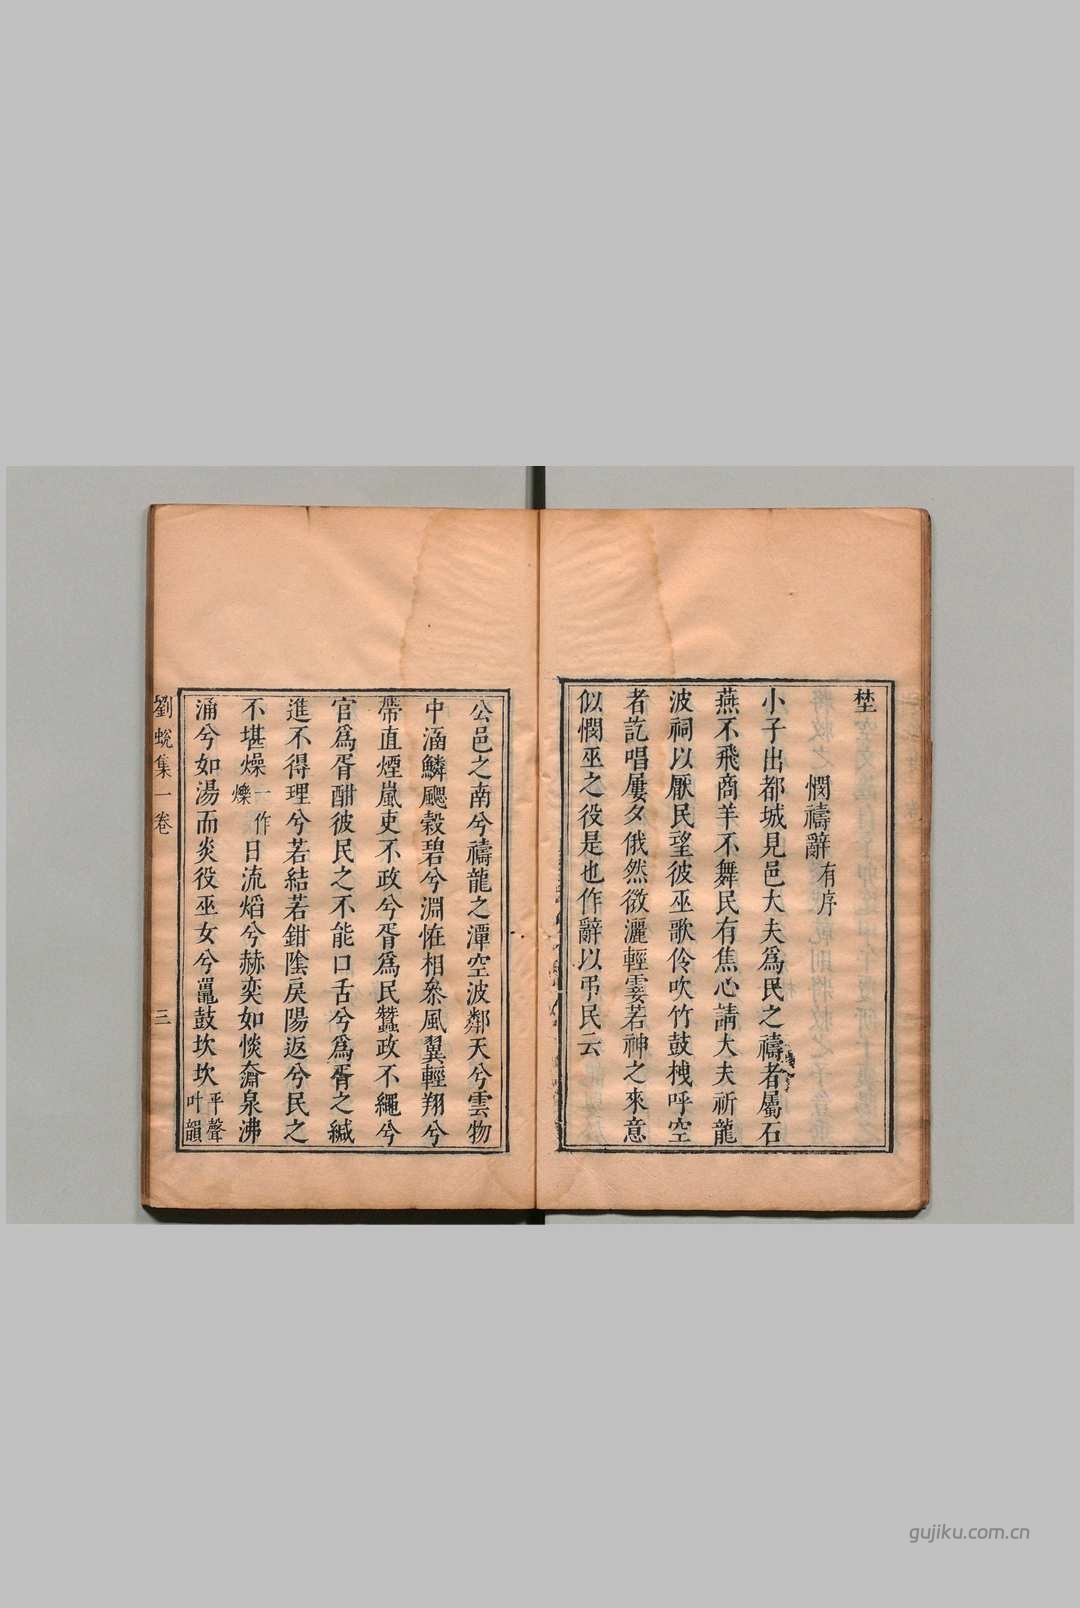 埜
憫禱辭有序
小子出都城見邑大夫爲民之禱者屬石
燕不飛商羊不舞民有焦心請大夫祈龍
波祠以厭民望彼巫歌伶吹竹鼓栧呼空
者訖唱屢夕俄然微灑輕霎若神之來意
似憫巫之役是也作辭以弔民云
公邑之南兮禱龍之潭空波鄰天兮雲物
中涵鱗颸縠碧兮淵怪相叅風翼輕翔兮
帶直煙嵐吏不政兮胥爲民蠶政不繩兮
官爲胥酣彼民之不能口舌兮爲胥之緘
進不得理兮若結若鉗陰戾陽返兮民之
不堪燥一作爍日流熖兮赫奕如惔奫泉沸
涌兮如湯而炎役巫女兮鼉鼓坎坎平聲叶韻
劉蛻集一卷 三
gujiku.com.cn